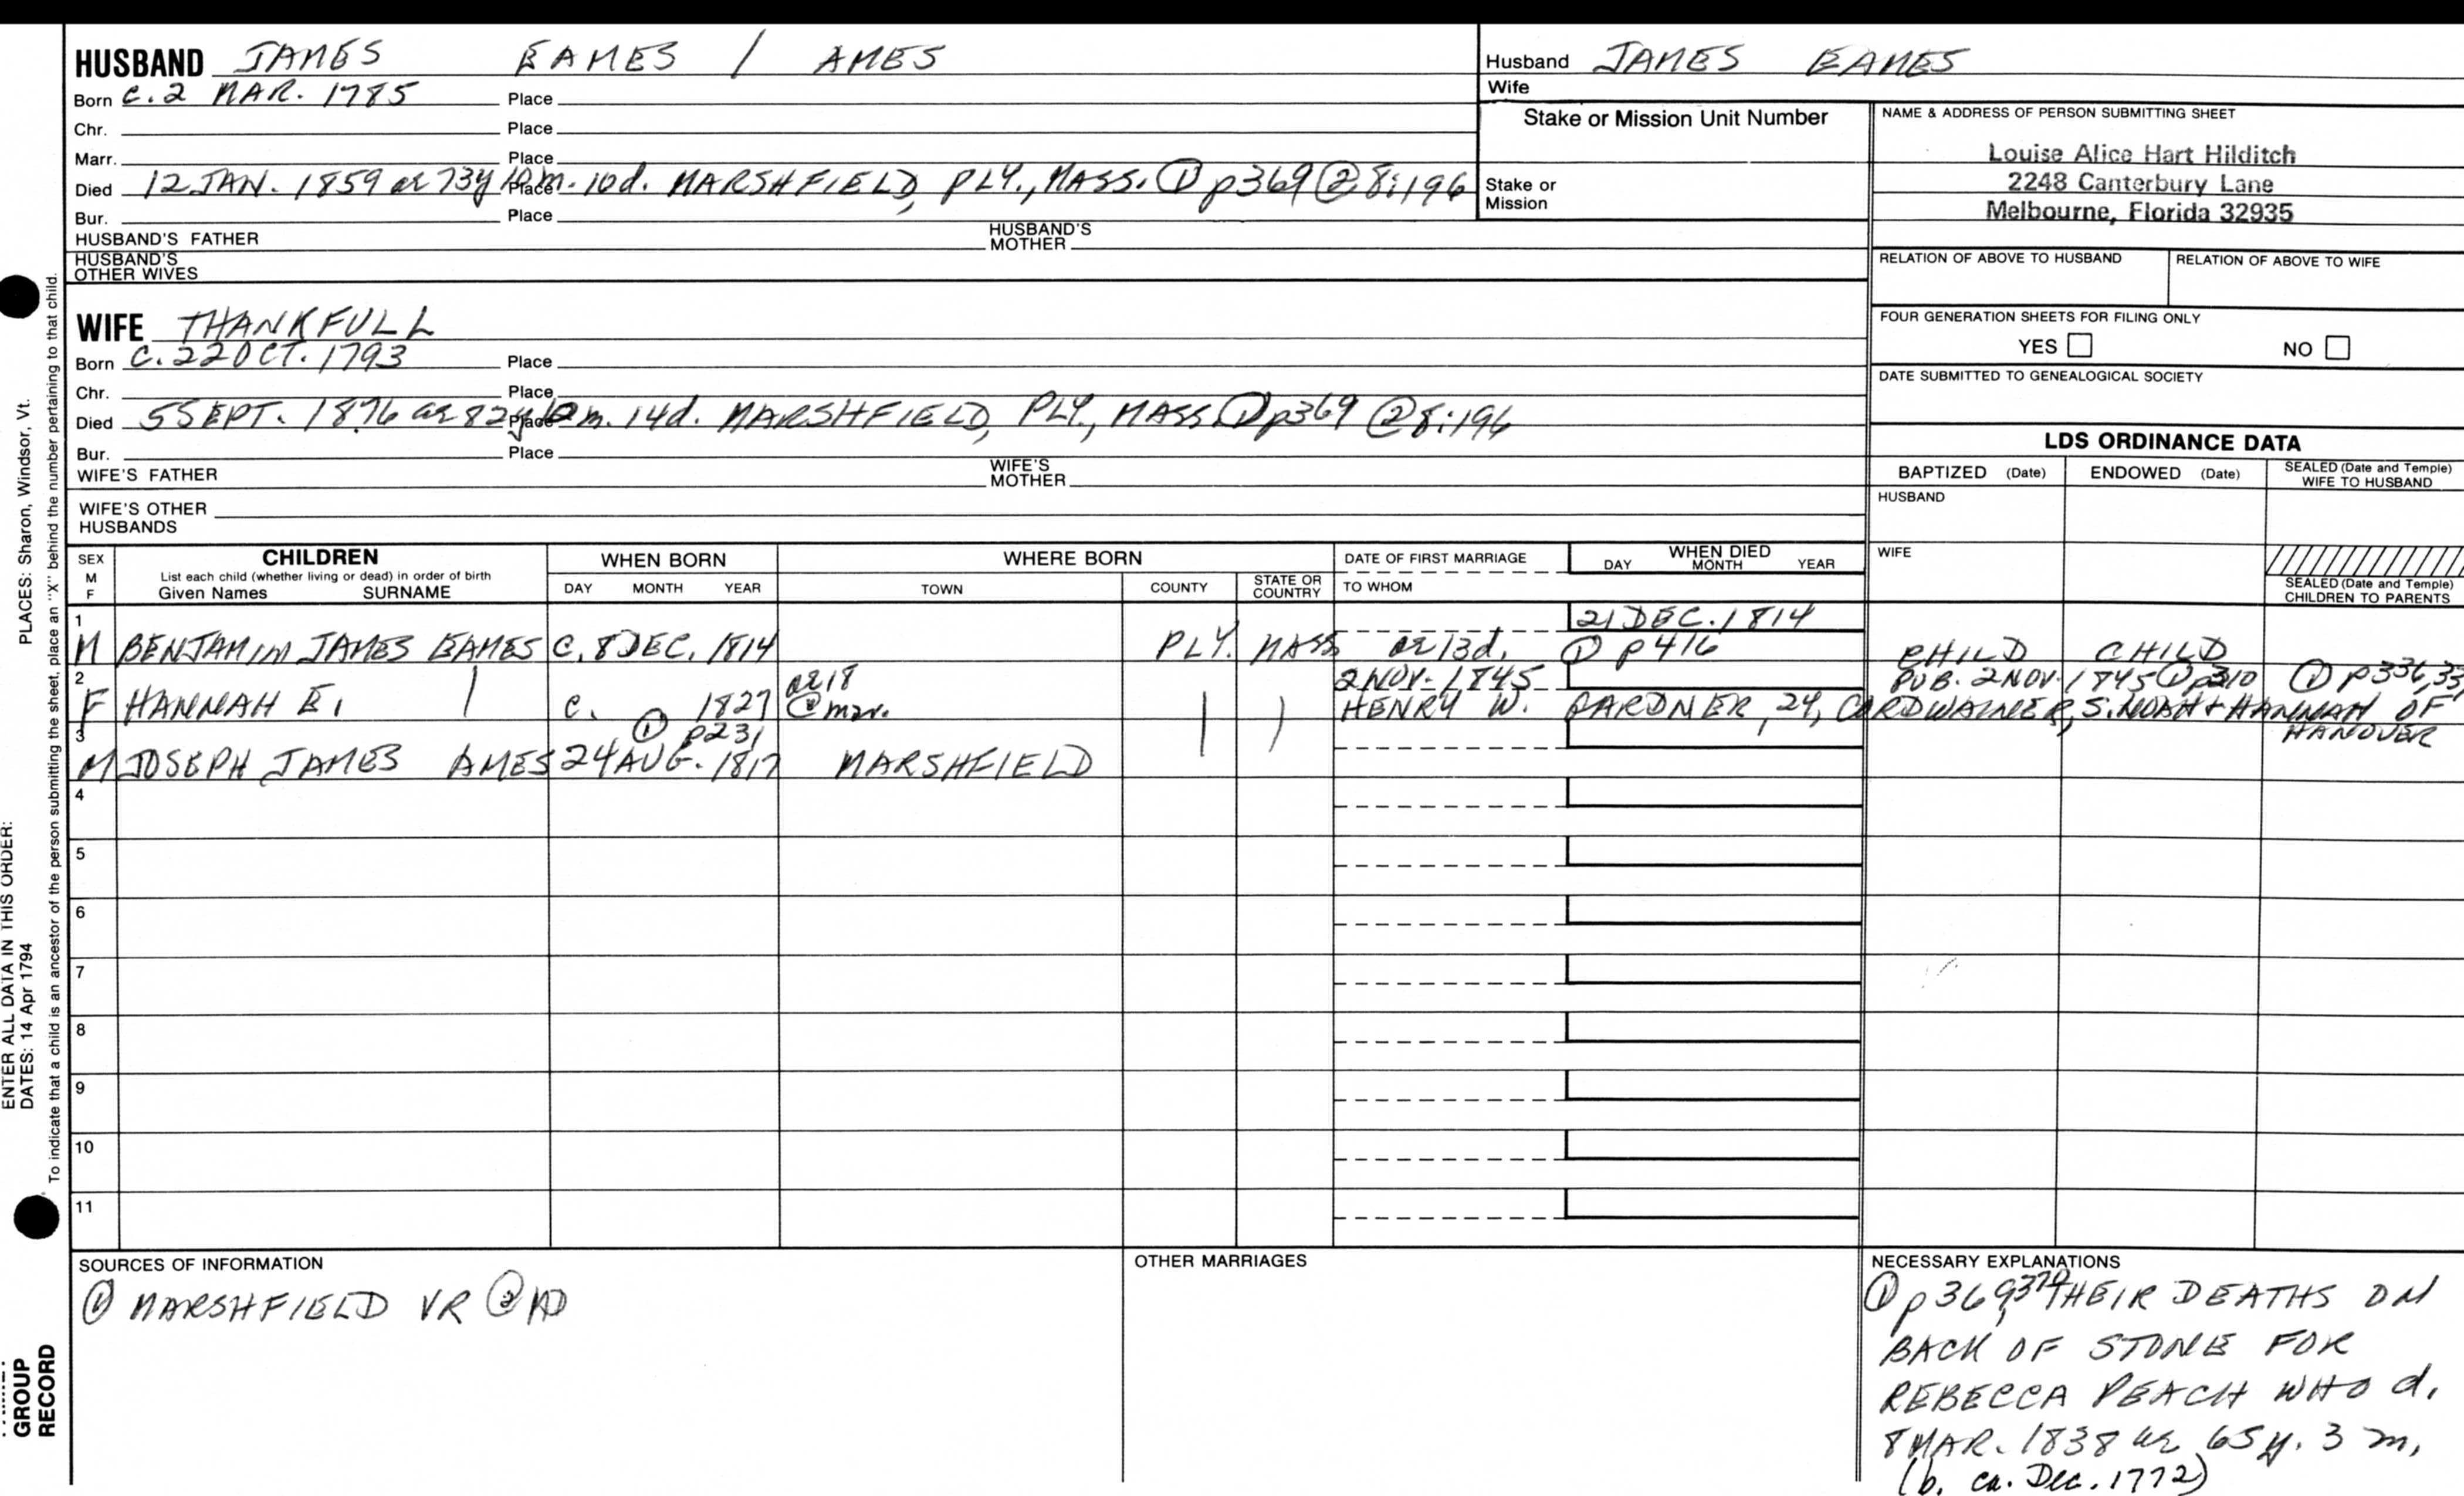 HUSBAND JAMES EAMES / AMES
Born c. 2 MAR. 1785 Place
Chr. Place
Marr. Place
Died 12 JAN. 1859 ae 73y 10m. 10d. Place MARSHFIELD, PLY., MASS. ① p369 ② 8:196
Bur. Place
HUSBAND'S FATHER HUSBAND'S MOTHER
HUSBAND'S OTHER WIVES
Husband JAMES EAMES
Wife
Stake or Mission Unit Number
Stake or
Mission
NAME & ADDRESS OF PERSON SUBMITTING SHEET
Louise Alice Hart Hilditch
2248 Canterbury Lane
Melbourne, Florida 32935
RELATION OF ABOVE TO HUSBAND RELATION OF ABOVE TO WIFE
FOUR GENERATION SHEETS FOR FILING ONLY
YES NO
DATE SUBMITTED TO GENEALOGICAL SOCIETY
WIFE THANKFULL
Born c. 22 OCT. 1793 Place
Chr. Place
Died 5 SEPT. 1876 ae 82y 10m. 14d. Place MARSHFIELD, PLY., MASS ① p369 ② 8:196
Bur. Place
WIFE'S FATHER WIFE'S MOTHER
WIFE'S OTHER
HUSBANDS
LDS ORDINANCE DATA
BAPTIZED (Date) ENDOWED (Date) SEALED (Date and Temple)
WIFE TO HUSBAND
HUSBAND
WIFE
SEALED (Date and Temple)
CHILDREN TO PARENTS
SEX
M
F
CHILDREN
List each child (whether living or dead) in order of birth
Given Names SURNAME
WHEN BORN
DAY MONTH YEAR
WHERE BORN
TOWN COUNTY STATE OR COUNTRY
DATE OF FIRST MARRIAGE
TO WHOM
WHEN DIED
DAY MONTH YEAR
1 21 DEC. 1814
M BENJAMIN JAMES EAMES c. 8 DEC. 1814 PLY. MASS ae 13d. ① p416 CHILD CHILD
2 ae 18 2 NOV. 1845 PUB. 2 NOV. 1845 ① p310 ① p336,33
F HANNAH E. | c. 1827 @ mar. | ) HENRY W. GARDNER, 24, CORDWAINER, S. NOAH + HANNAH OF
3 ① p231 HANOVER
M JOSEPH JAMES AMES 24 AUG. 1817 MARSHFIELD
4
5
6
7
8
9
10
11
SOURCES OF INFORMATION
① MARSHFIELD VR ②
OTHER MARRIAGES
NECESSARY EXPLANATIONS
① p369,370 THEIR DEATHS ON
BACK OF STONE FOR
REBECCA PEACH WHO d.
8 MAR. 1838 ae 65 y. 3 m.
(b. ca. Dec. 1772)
ENTER ALL DATA IN THIS ORDER:
DATES: 14 Apr 1794 PLACES: Sharon, Windsor, Vt.
To indicate that a child is an ancestor of the person submitting the sheet, place an "X" behind the number pertaining to that child.
GROUP
RECORD